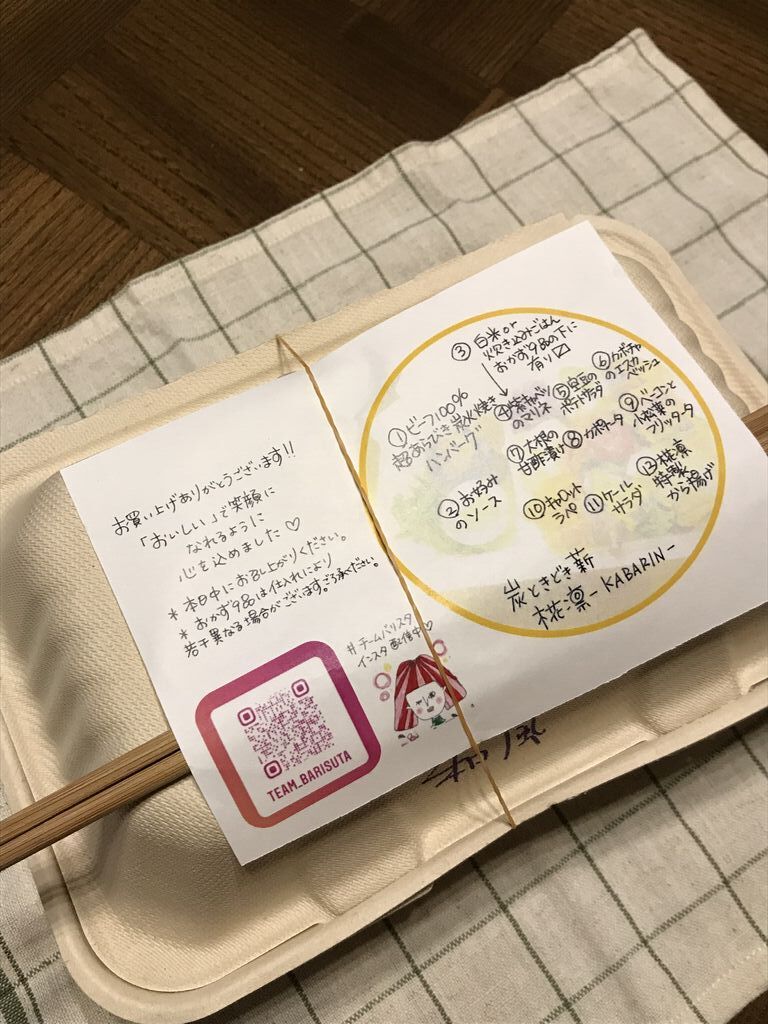 お買い上げありがとうございます!!
「おいしい」で笑顔に
なれるように
心を込めました♡
* 本日中にお召し上がりください。
* おかず9品は仕入れにより
若干異なる場合がございます。ご了承ください。
#チームバリスタ
インスタ配信中♡
TEAM_BARISUTA
③ 白米or
炊き込みごはん
おかず9品の下に
有り☑
① ビーフ100%
超あらびき炭火焼き
ハンバーグ
② お好みの
のソース
④ 紫キャベツ
のマリネ
⑤ 豆豆の
ポテトサラダ
⑥ カボチャ
のエスカ
ベッシュ
⑦ 大根の
甘酢漬け
⑧ カポナータ
⑨ ベーコンと
小松菜の
フリッタータ
⑩ キャロット
ラペ
⑪ ケール
サラダ
⑫ 椛凛
特製
から揚げ
炭ときどき薪
椛凛 -KABARIN-